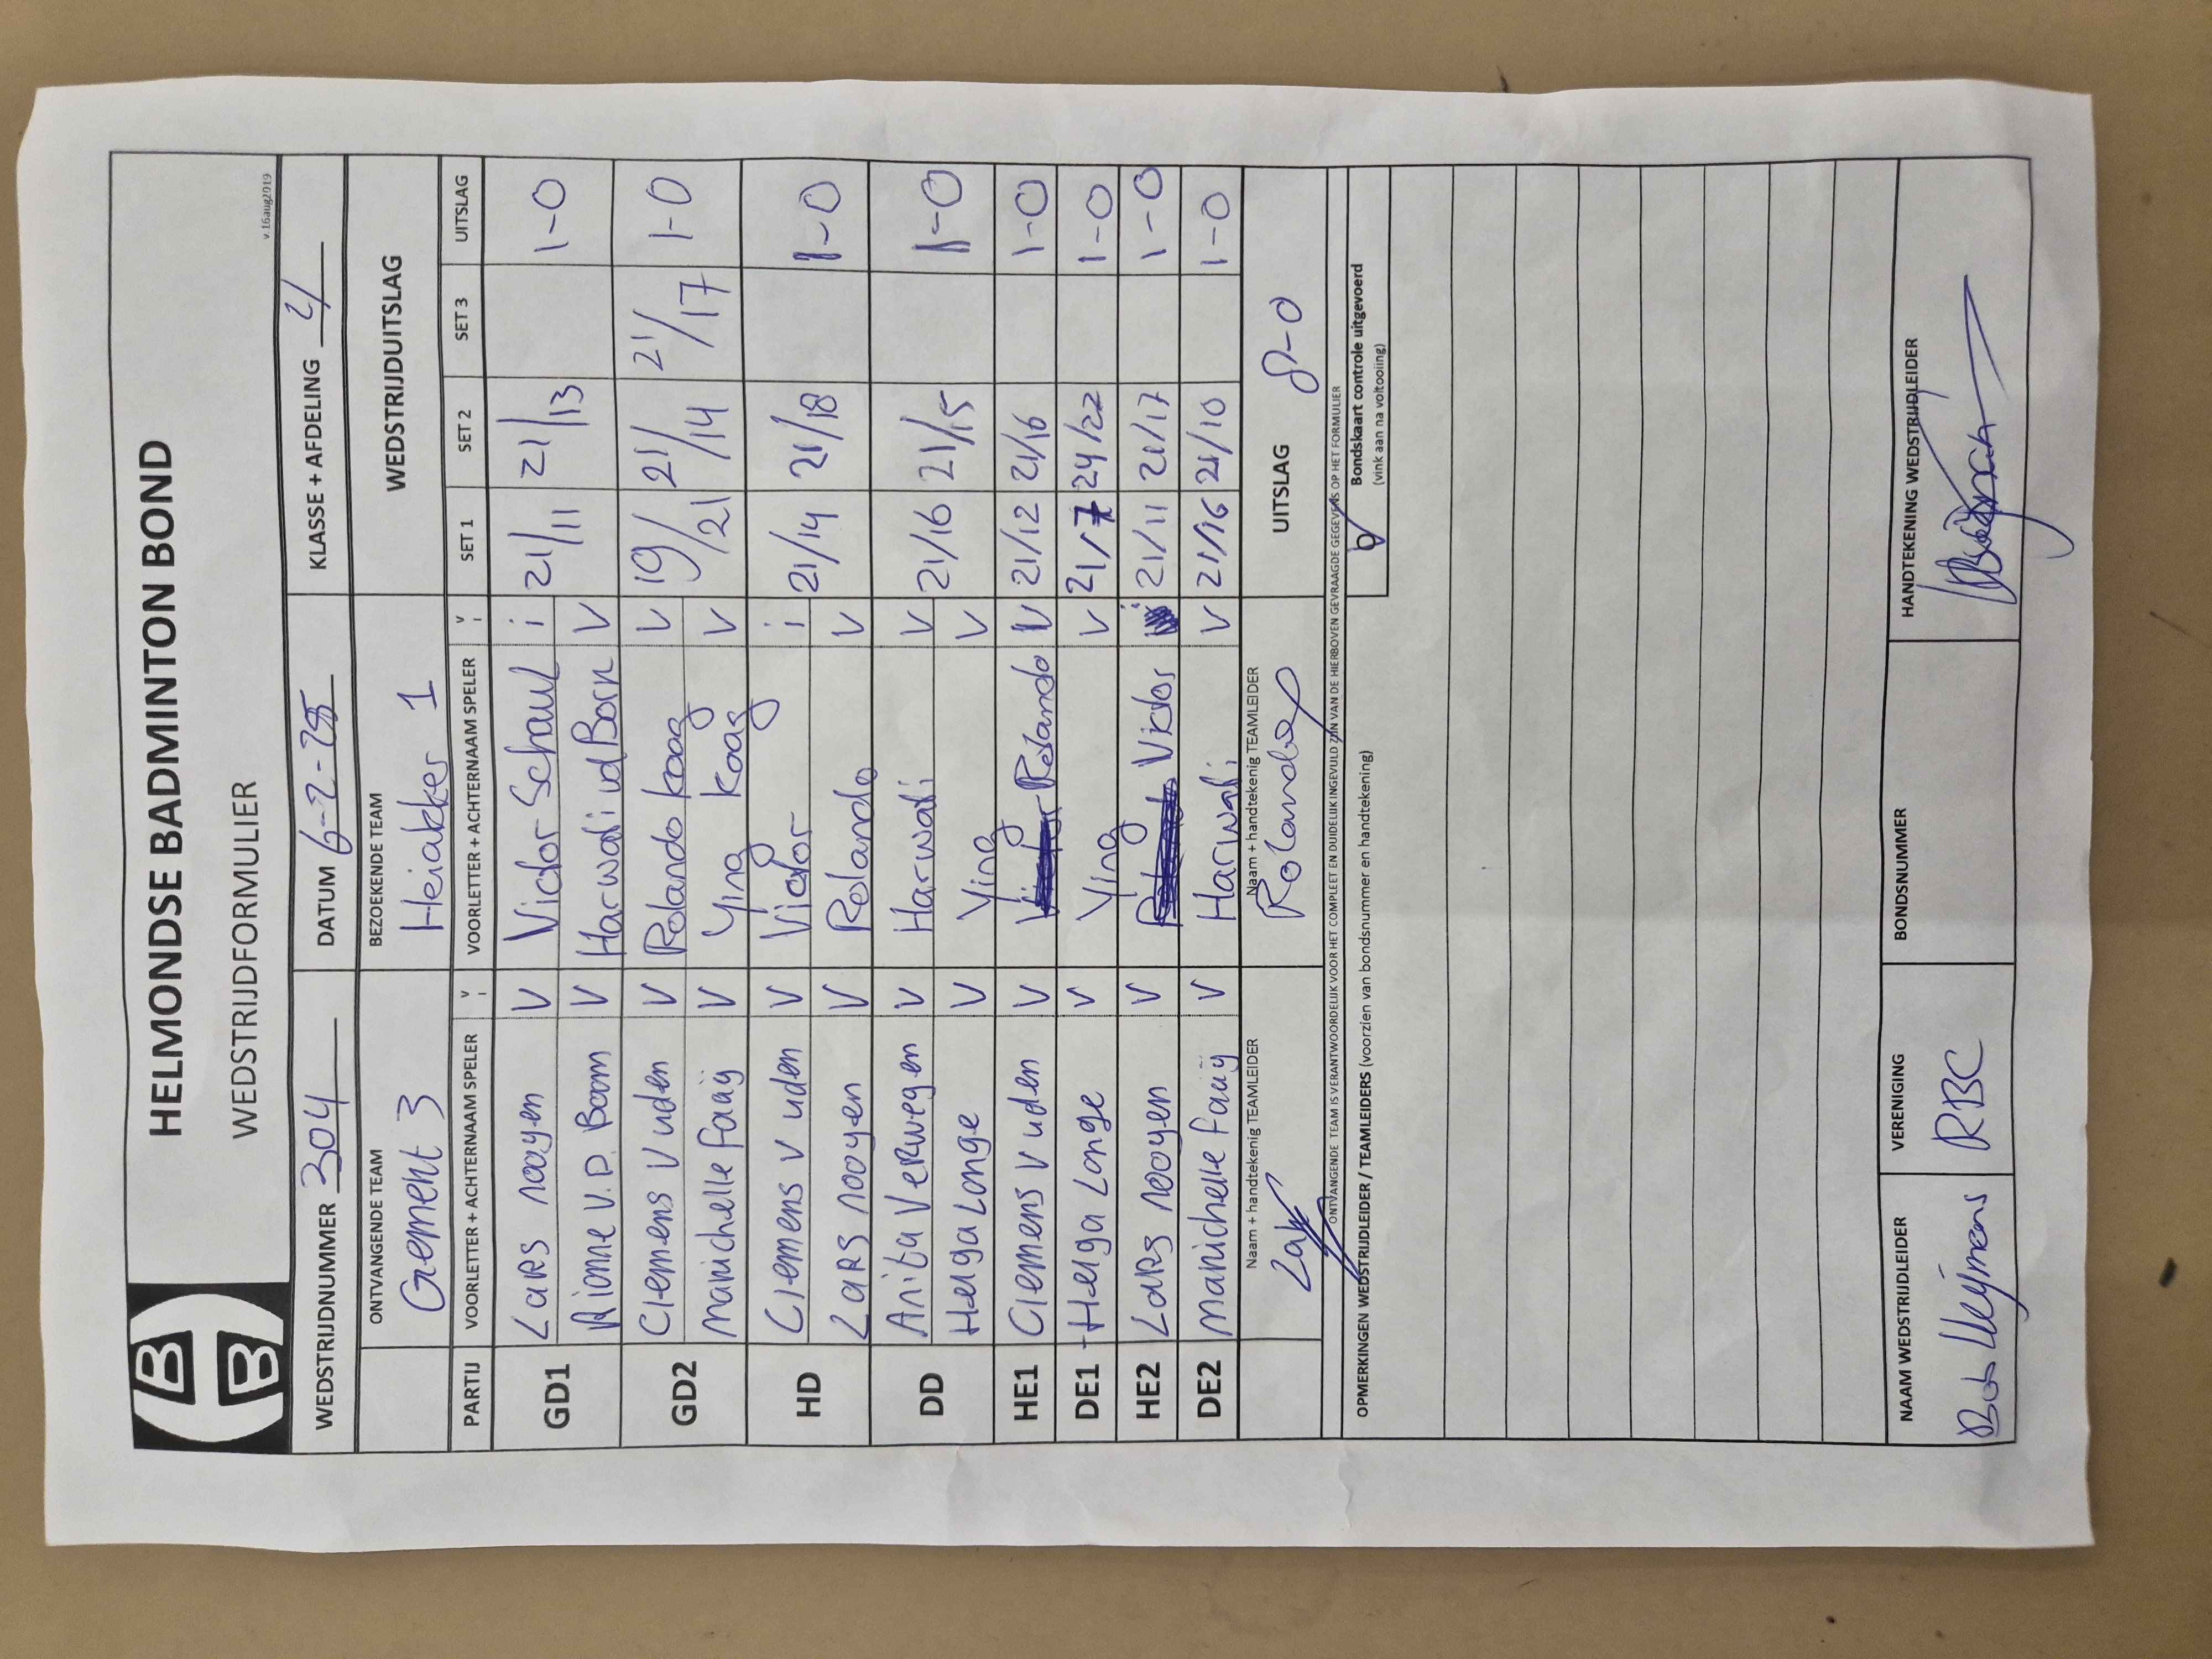 HELMONDSE BADMINTON BOND
WEDSTRIJDFORMULIER
v.16aug2019
HBB
WEDSTRIJDNUMMER 304 DATUM 6-2-25 KLASSE + AFDELING 4
ONTVANGENDE TEAM BEZOEKENDE TEAM WEDSTRIJDUITSLAG
Gemert 3 Heiakker 1
PARTIJ VOORLETTER + ACHTERNAAM SPELER V i VOORLETTER + ACHTERNAAM SPELER V i SET 1 SET 2 SET 3 UITSLAG
GD1 Lars nooyen V Victor Schouw i 21/11 21/13 1-0
Rionne V.D. Boom V Harwdi vd Born V
GD2 Clemens V uden V Rolando Kaag V 19/21 21/14 21/17 1-0
manichelle faaij V Ying Kaag V
HD Clemens V uden V Victor i 21/14 21/18 1-0
Lars nooyen V Rolando V
DD Anita Verwegen V Harwdi V 21/16 21/15 1-0
Helga Lange V Ying V
HE1 Clemens V uden V Rolando V 21/12 21/16 1-0
DE1 Helga Lange V Ying V 21/7 24/22 1-0
HE2 Lars nooyen V Victor 21/11 21/17 1-0
DE2 manichelle faaij V Harwdi V 21/16 21/10 1-0
Naam + handtekenig TEAMLEIDER Naam + handtekenig TEAMLEIDER UITSLAG 8-0
Rolando
ONTVANGENDE TEAM IS VERANTWOORDELIJK VOOR HET COMPLEET EN DUIDELIJK INGEVULD ZIJN VAN DE HIERBOVEN GEVRAAGDE GEGEVENS OP HET FORMULIER
OPMERKINGEN WEDSTRIJDLEIDER / TEAMLEIDERS (voorzien van bondsnummer en handtekening)
Bondskaart controle uitgevoerd
(vink aan na voltooiing)
NAAM WEDSTRIJDLEIDER VERENIGING BONDSNUMMER HANDTEKENING WEDSTRIJDLEIDER
Bob Heijmans RBC